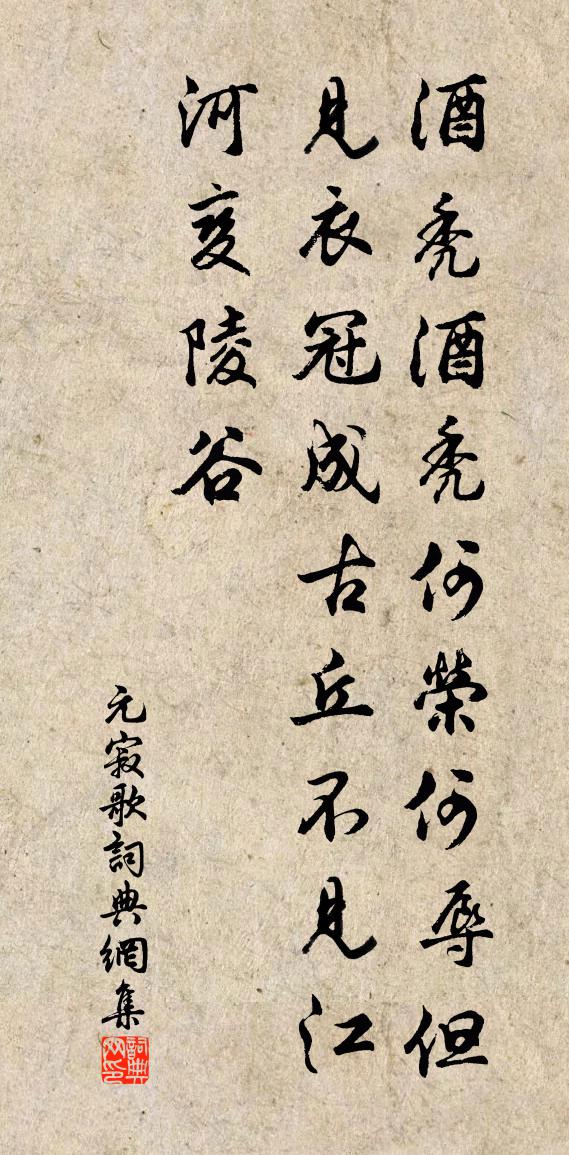 酒秃酒秃何榮何辱但
見衣冠成古丘不見江
河变陵谷
元寂歌詞典網集
詞典網印